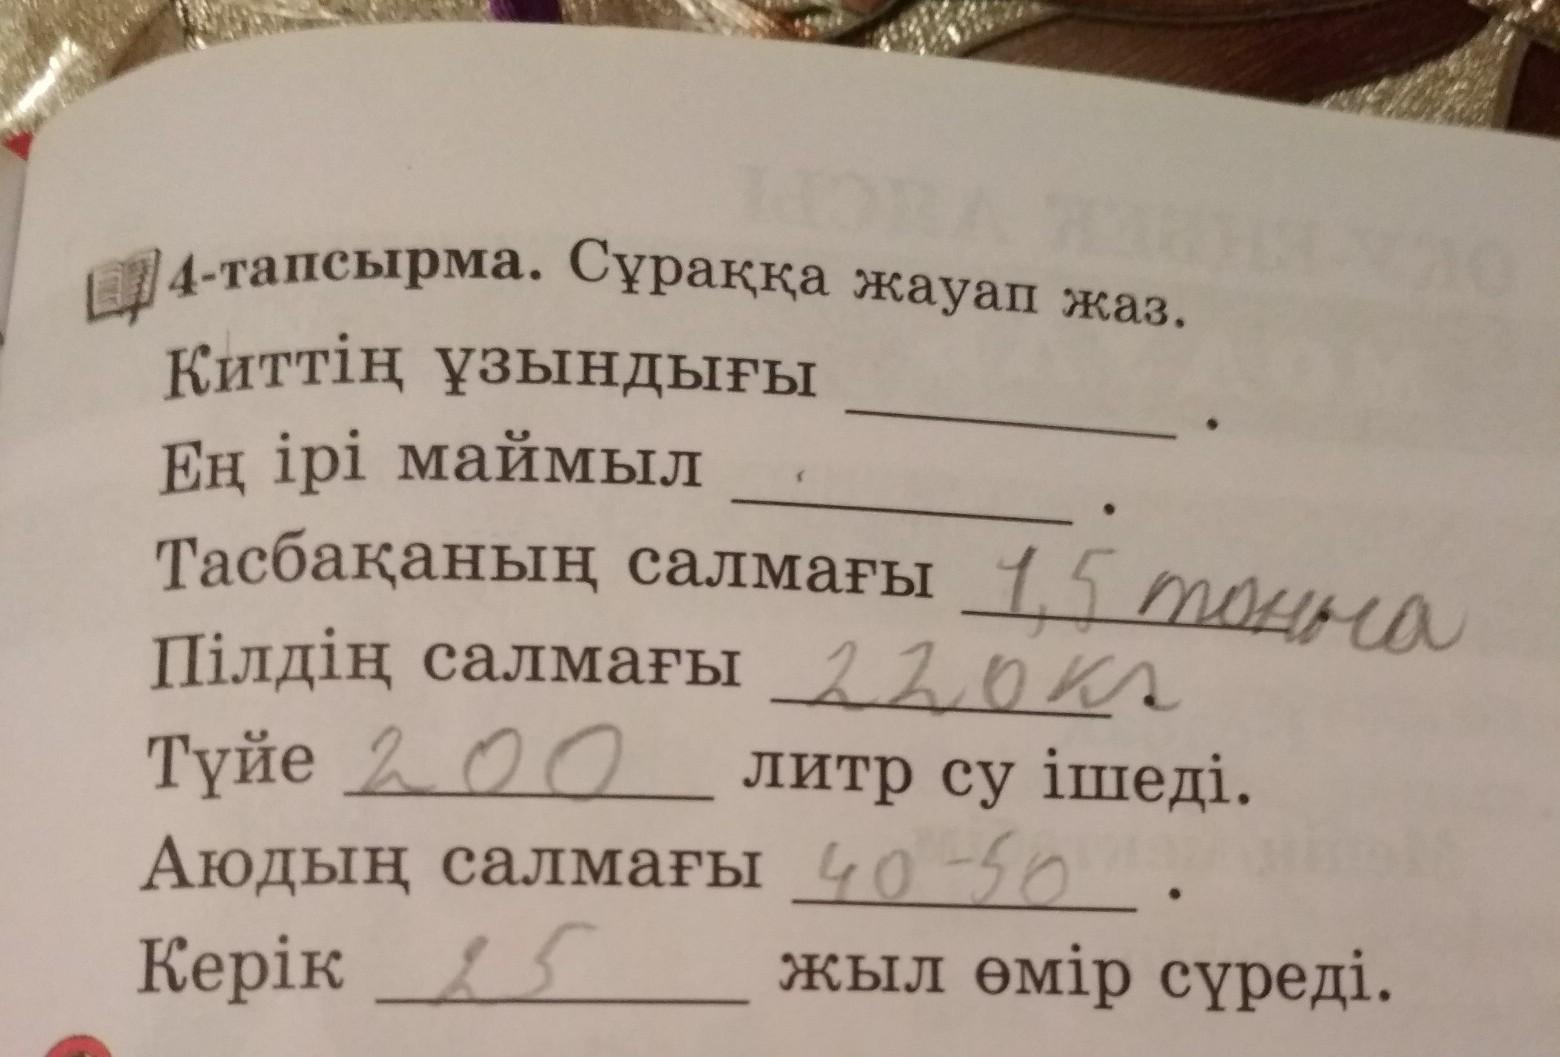 4-тапсырма. Сұраққа жауап жаз.
Киттің ұзындығы ________ .
Ең ірі маймыл ________ .
Тасбақаның салмағы 1,5 тонна
Пілдің салмағы 220 кг.
Түйе 200 литр су ішеді.
Аюдың салмағы 40-50 .
Керік 25 жыл өмір сүреді.